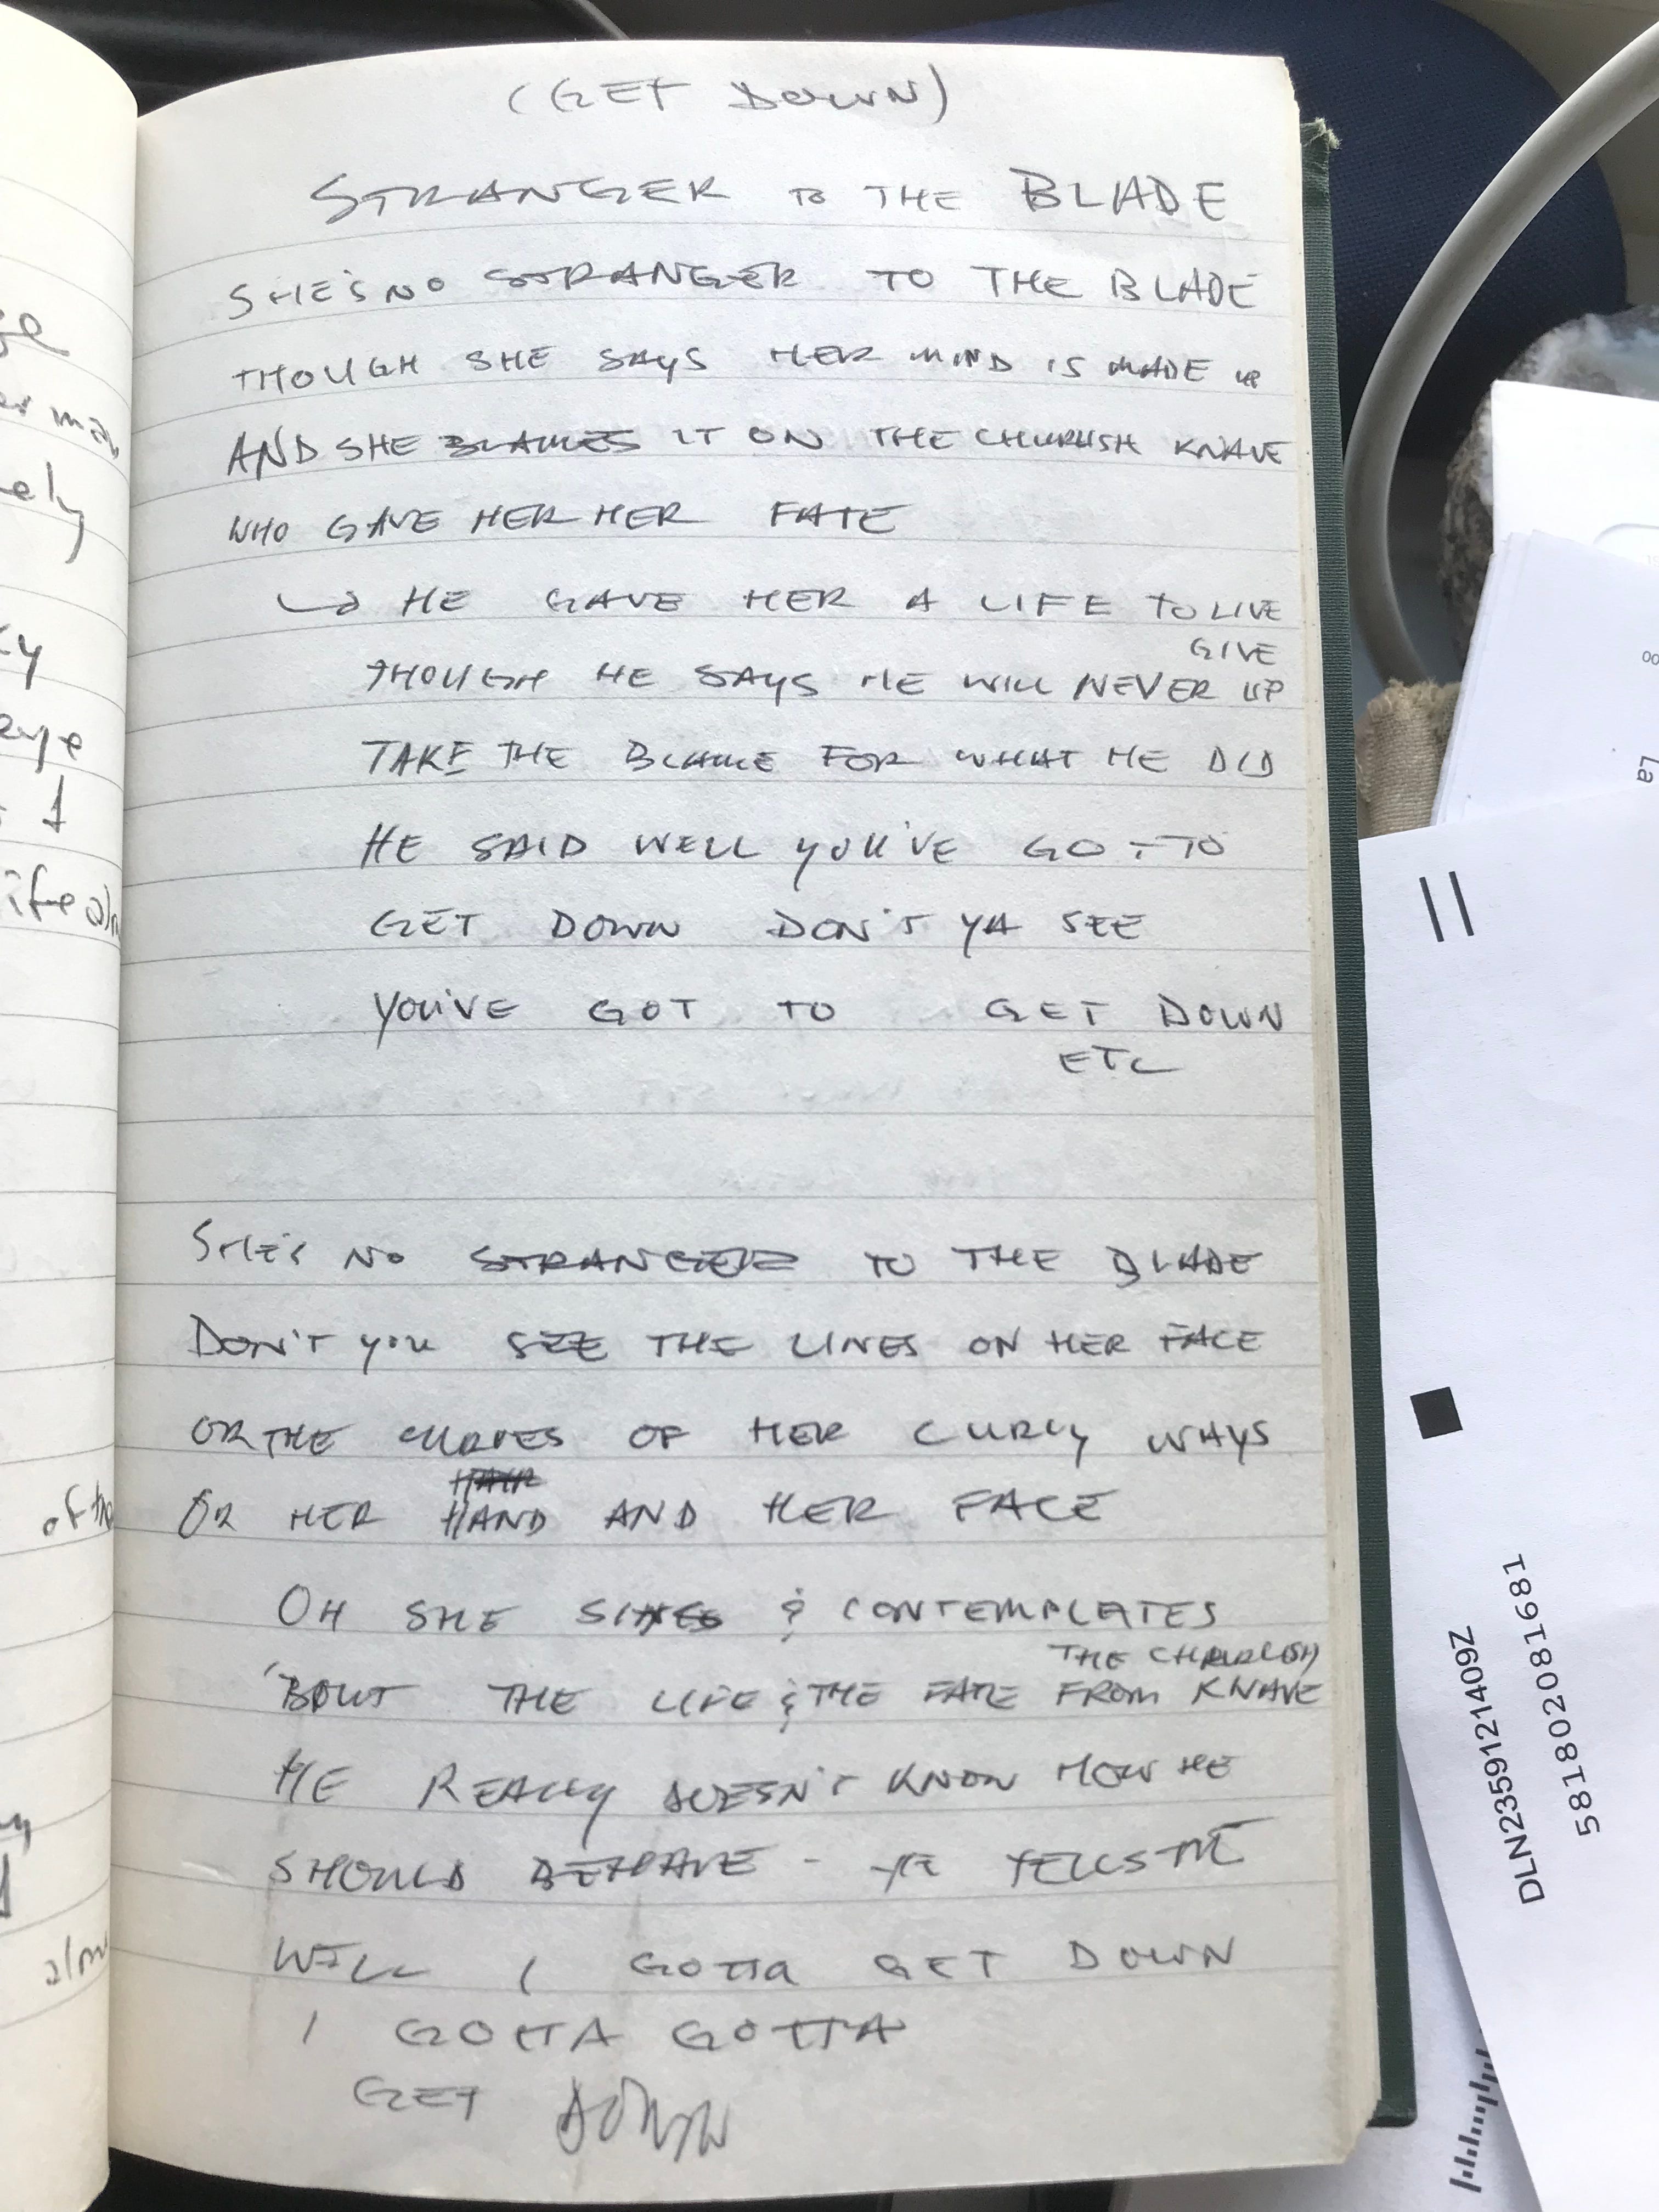 (GET DOWN)
STRANGER TO THE BLADE
SHE'S NO STRANGER TO THE BLADE
THOUGH SHE SAYS HER MIND IS MADE UP
AND SHE BLAMES IT ON THE CHURLISH KNAVE
WHO GAVE HER HER FATE
↳ HE GAVE HER A LIFE TO LIVE
GIVE
THOUGH HE SAYS HE WILL NEVER UP
TAKE THE BLAME FOR WHAT HE DID
HE SAID WELL YOU'VE GOT TO
GET DOWN DON'T YA SEE
YOU'VE GOT TO GET DOWN
ETC
SHE'S NO STRANGER TO THE BLADE
DON'T YOU SEE THE LINES ON HER FACE
OR THE CURVES OF HER CURLY WAYS
HAIR
OR HER HAND AND HER FACE
OH SHE SINGS & CONTEMPLATES
THE CHURLISH
'BOUT THE LIFE & THE FATE FROM KNAVE
HE REALLY DOESN'T KNOW HOW HE
SHOULD BEHAVE - HE TELLS ME
WELL I GOTTA GET DOWN
I GOTTA GOTTA
GET DOWN
ely
of the
La
DLN2359121409Z
581802081681